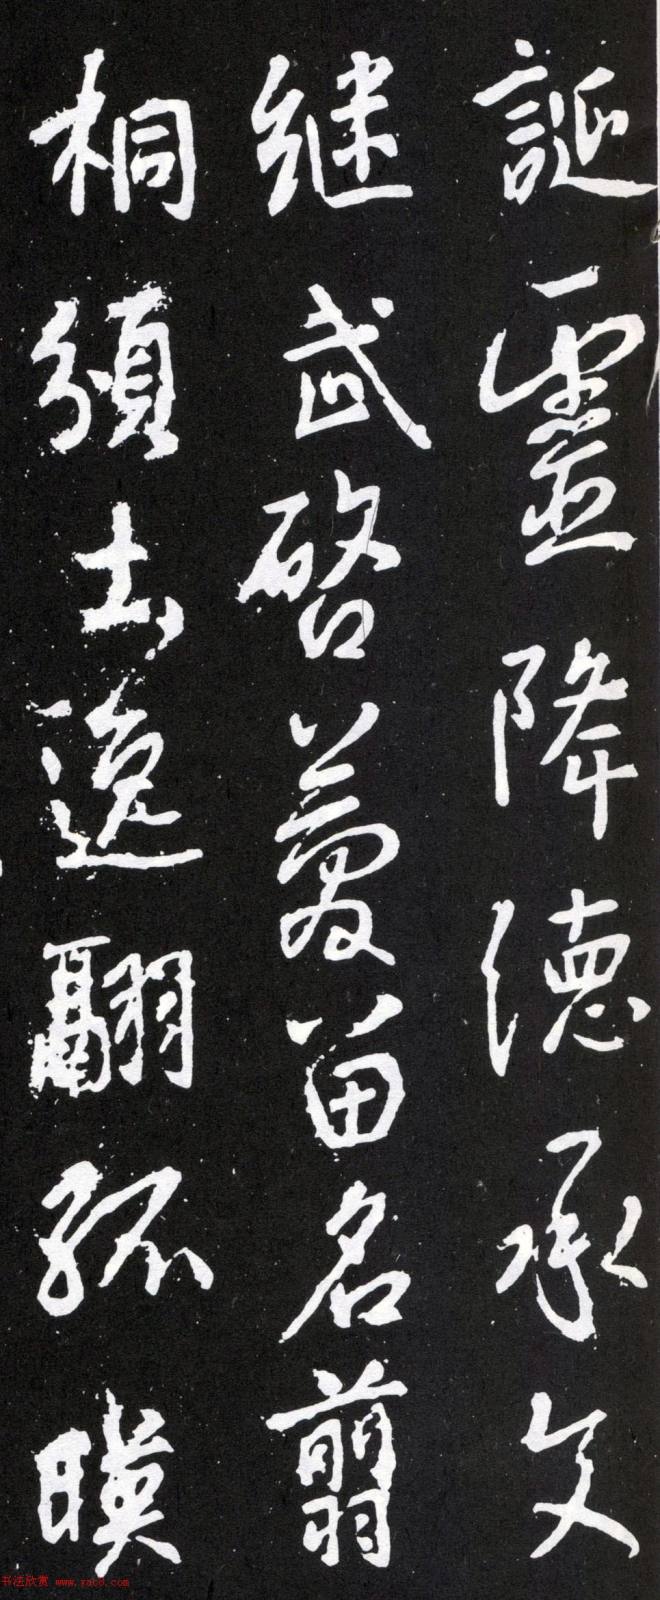 誕靈降德承文
継武啓慶留名翦
桐頒土逸翮孤暎
书法欣赏 www.yac8.com